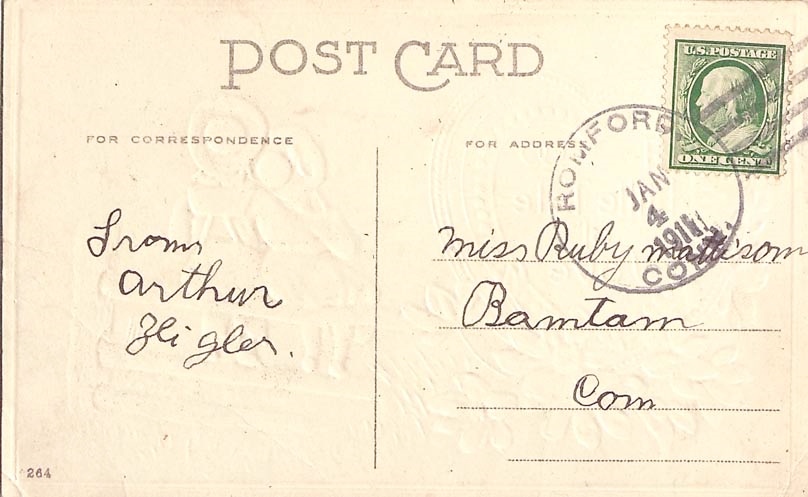 POST CARD
U.S. POSTAGE
ONE CENT
FOR CORRESPONDENCE
FOR ADDRESS
ROMFORD
JAN
4
1911
CONN.
From
Arthur
Miss Ruby Mattison
Bamtam
Com
264